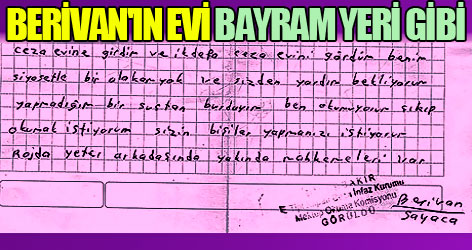 BERİVAN'IN EVİ BAYRAM YERİ GİBİ
ceza evine girdir ve ilk defa ceza evini gördür benim
siyasetle bir alakam yok ve sizden yardır bekliyorur
yapmadığım bir suçtan burdayım ben okumuyorur çıkıp
okumak istiyorum sizin bişiler yapmanızı istiyorur
Rojda yeter arkadaşında yakında mahkemeleri var
İnfaz Kurumu
Mektup Okuma Komisyonu
GÖRÜLDÜ
Berivan
Sayaca